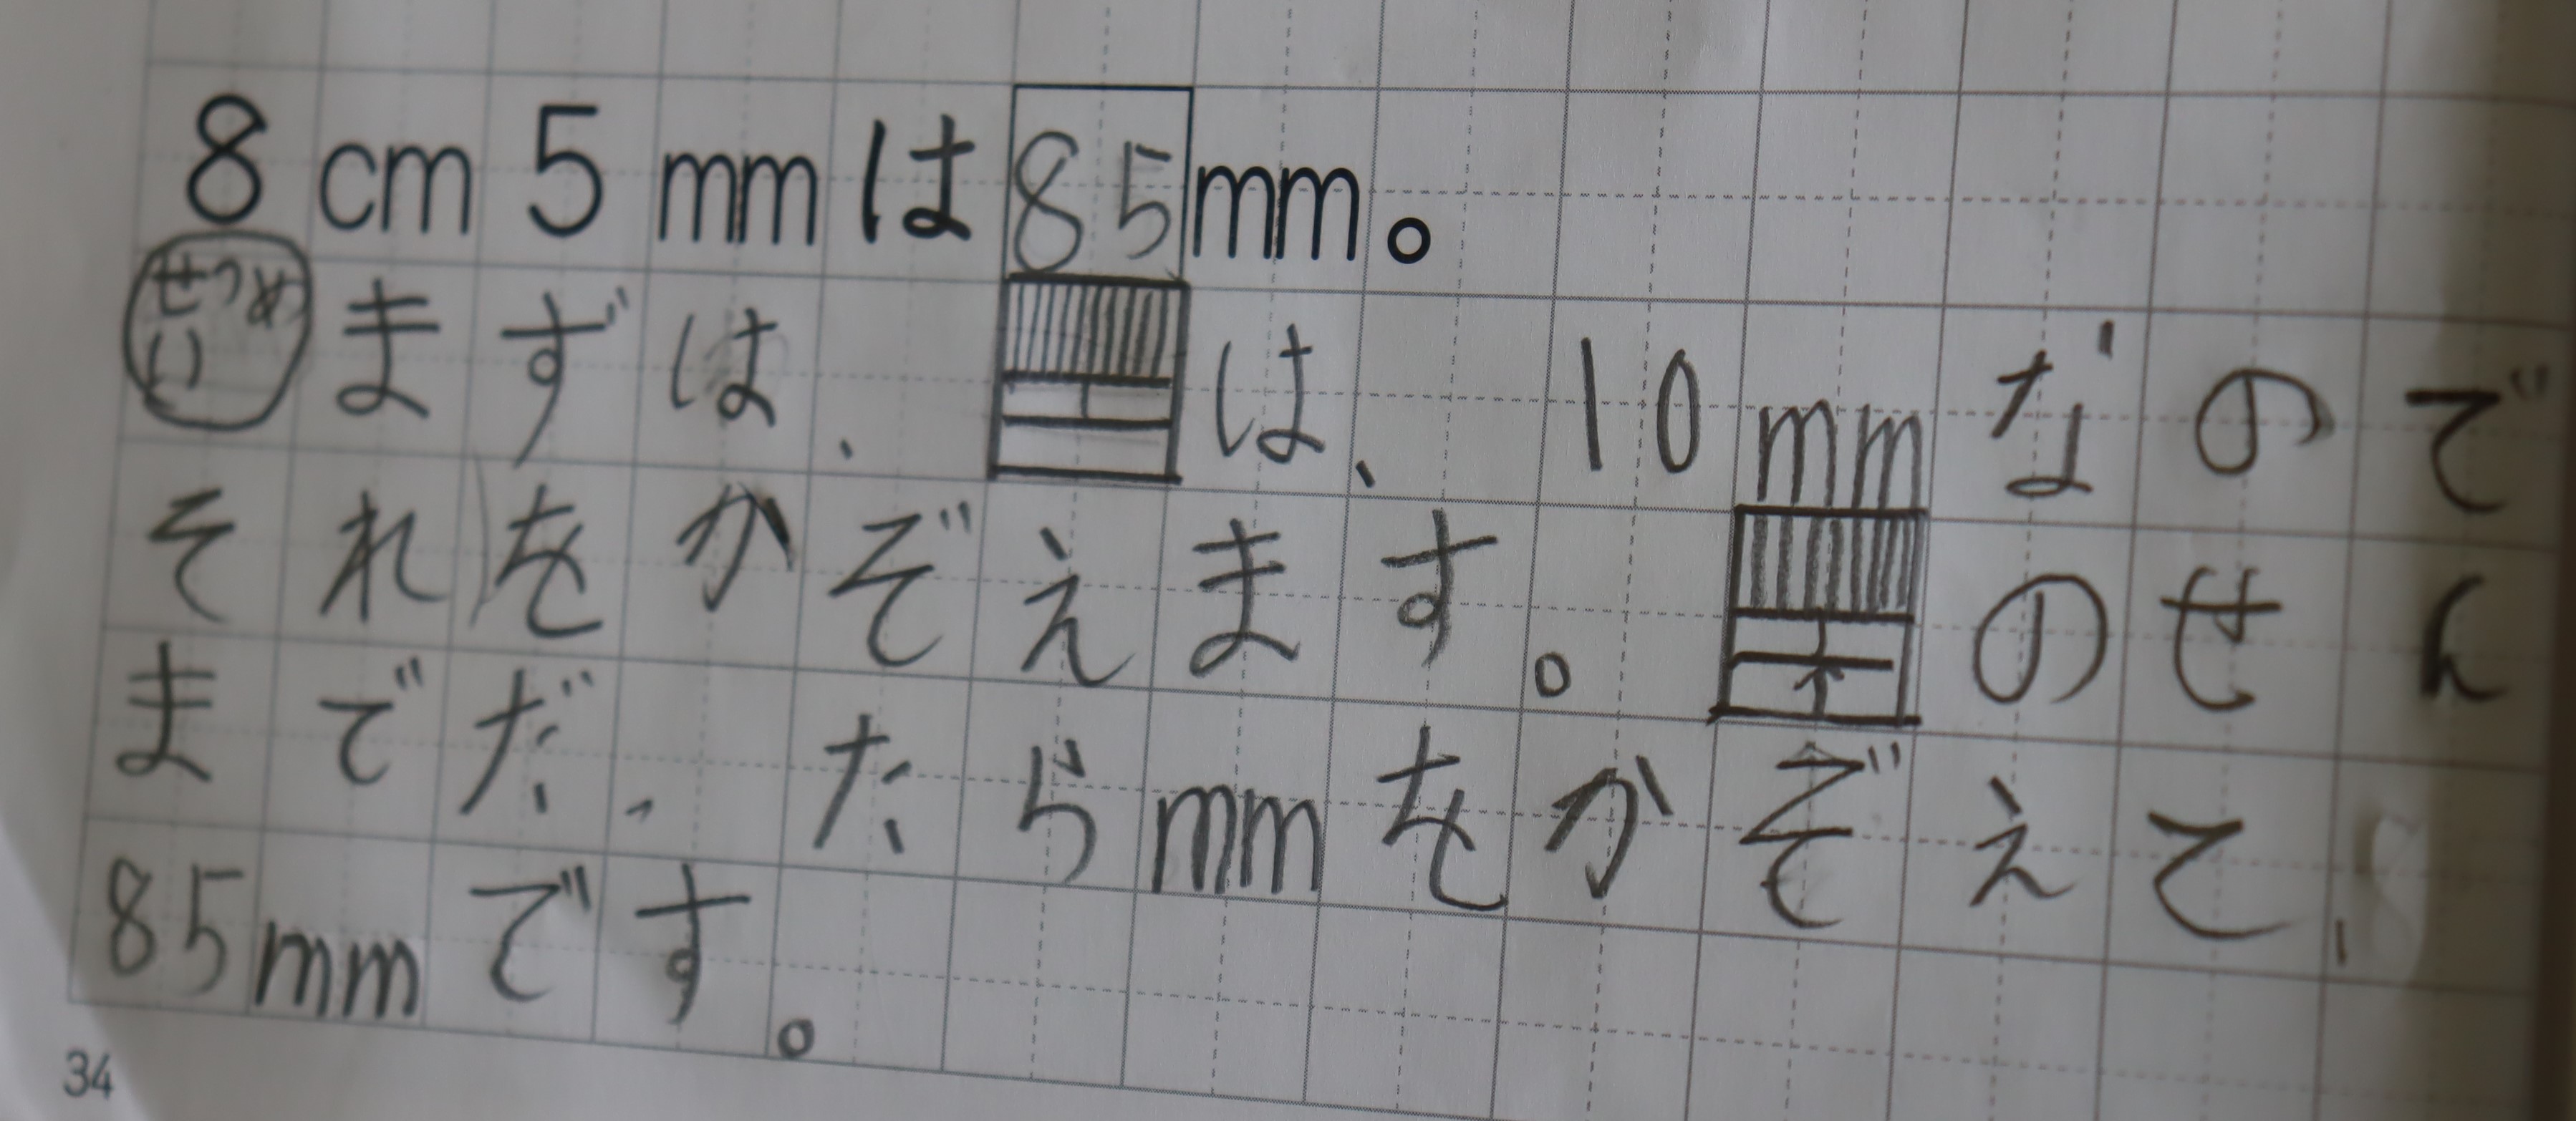 8cm5mmは85mm。
せつめい まずは、は、10mmなので
それをかぞえます。のせん
までだ、たらmmをかぞえて、
85mmです。
34